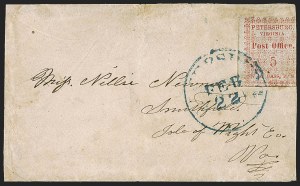 PETERSBURG
VIRGINIA
Post Office.
5
FEB
22
Miss Nellie
Smithfield
Isle of Wight Co.
Va.